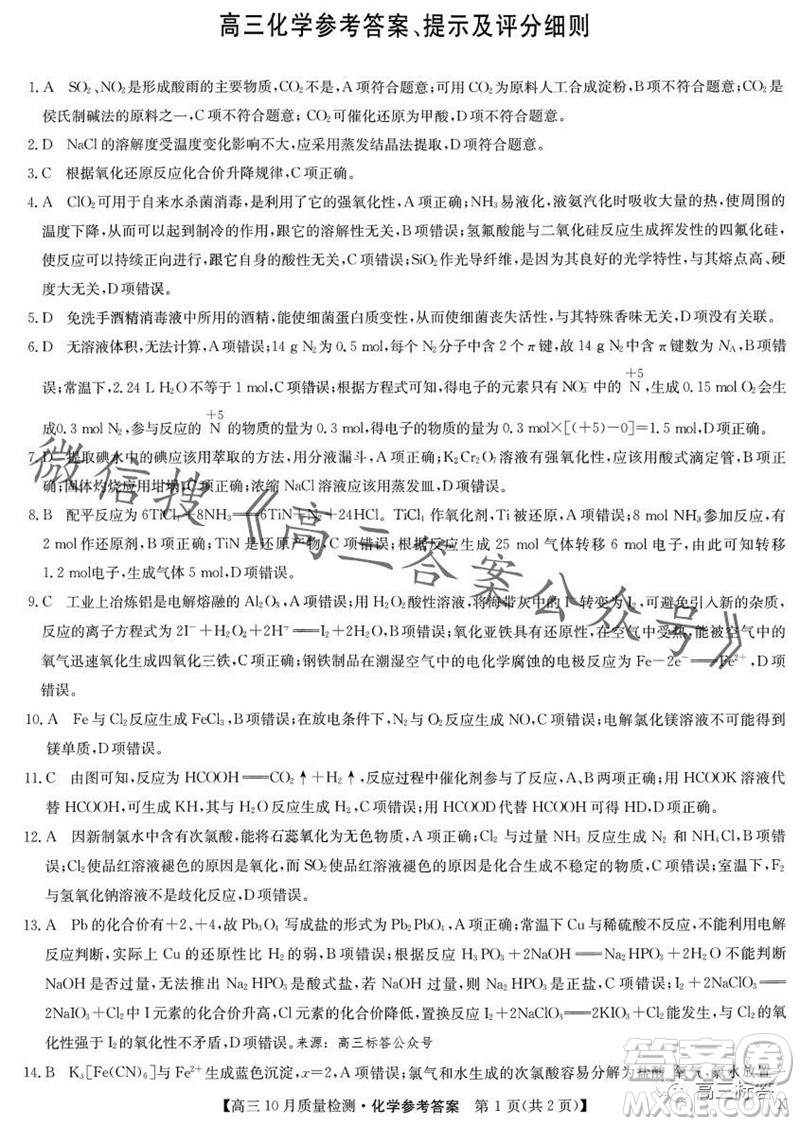 高三化学参考答案、提示及评分细则
1. A SO₂、NO₂是形成酸雨的主要物质,CO₂不是,A项符合题意;可用CO₂为原料人工合成淀粉,B项不符合题意;CO₂是
侯氏制碱法的原料之一,C项不符合题意;CO₂可催化还原为甲酸,D项不符合题意。
2. D NaCl的溶解度受温度变化影响不大,应采用蒸发结晶法提取,D项符合题意。
3. C 根据氧化还原反应化合价升降规律,C项正确。
4. A ClO₂可用于自来水杀菌消毒,是利用了它的强氧化性,A项正确;NH₃易液化,液氨汽化时吸收大量的热,使周围环境的
温度下降,从而起到制冷的作用,跟它的溶解性无关,B项错误;氢氟酸能与二氧化硅反应生成挥发性的四氟化硅,
使反应可以持续正向进行,跟它自身的酸性无关,C项错误;SiO₂作光导纤维,是因为其良好的光学特性,与其熔点高、
硬度大无关,D项错误。
5. D 免洗手酒精消毒液中所用的酒精,能使细菌蛋白质变性,从而使细菌丧失活性,与其特殊香味无关,D项没有关联。
6. D 无溶液体积,无法计算,A项错误;14 g N₂为0.5 mol,每个N₂分子中含2个π键,故14 g N₂中含π键数为Nₐ,B项错
误;常温下,2.24 L H₂O不为1 mol,C项错误;根据方程式可知,得电子的元素只有NO₃⁻中的 +5N,生成0.15 mol O₂会生
成0.3 mol N₂,参与反应的 +5N 的物质的量为0.3 mol,得电子的物质的量为0.3 mol×[(+5)-0]=1.5 mol,D项正确。
7. D 提取碘水中的碘应该用萃取的方法,用分液漏斗,A项正确;K₂Cr₂O₇溶液有强氧化性,应该用酸式滴定管,B项正
确;固体灼烧应用坩埚,C项正确;浓缩NaCl溶液应该用蒸发皿,D项错误。
8. B 配平反应为6TiCl₄+8NH₃══6TiN+N₂+24HCl。TiCl₄作氧化剂,Ti被还原,A项错误;8 mol NH₃参与反应,有
2 mol作还原剂,B项正确;TiN是还原产物,C项错误;根据反应生成25 mol气体转移6 mol电子,由此可知,转移
1.2 mol电子,生成气体5 mol,D项错误。
9. C 工业上冶炼铝是电解熔融的Al₂O₃,A项错误;用H₂O₂酸性溶液,将海带灰中的I⁻转变为I₂,可避免引入新的杂质,
反应的离子方程式为2I⁻+H₂O₂+2H⁺══I₂+2H₂O,B项错误;氧化亚铁具有还原性,在空气中受热,能被空气中的
氧气迅速氧化生成四氧化三铁,C项正确;钢铁制品在潮湿空气中的电化学腐蚀的电极反应为Fe-2e⁻══Fe²⁺,D项
错误。
10. A Fe与Cl₂反应生成FeCl₃,B项错误;在放电条件下,N₂与O₂反应生成NO,C项错误;电解氯化镁溶液不能得到
镁单质,D项错误。
11. C 由图可知,反应为HCOOH══CO₂↑+H₂↑,反应过程中催化剂参与了反应,A、B两项正确;用HCOOK溶液代
替HCOOH,可生成KH,其与水反应生成H₂,C项错误;用HCOOD代替HCOOH可得到HD,D项正确。
12. A 因新制氯水中含有次氯酸,能将石蕊氧化为无色物质,A项正确;Cl₂与过量NH₃反应生成N₂和NH₄Cl,B项错误;
Cl₂使品红溶液褪色的原因是氧化,而SO₂使品红溶液褪色的原因是化合生成不稳定的无色物质,C项错误;室温下,F₂
与氢氧化钠溶液不是歧化反应,D项错误。
13. A Pb的化合价有+2、+4,故Pb₃O₄写成盐的形式为Pb₂PbO₄,A项正确;常温下Cu与稀硫酸不反应,不能利用电解
反应判断,实际上Cu的还原性比H₂的弱,B项错误;H₃PO₃+2NaOH══Na₂HPO₃+2H₂O不能判断
NaOH是否过量,无法推出Na₂HPO₃是酸式盐,其实Na₂HPO₃是正盐,C项错误;I₂+2NaClO₃══
2NaIO₃+Cl₂中I元素的化合价升高,Cl元素的化合价降低,置换反应I₂+2KClO₃══2KIO₃+Cl₂与Cl₂的氧化性
强于I₂的氧化性不矛盾,D项错误。来源:高三标答公众号
14. B K₃[Fe(CN)₆]与Fe²⁺生成蓝色沉淀,x=2,A项错误;氯气和水生成的次氯酸分解为盐酸、氧气,氯水放置
【高三10月质量检测·化学参考答案 第1页(共2页)】 A
微信搜《高三答案公众号》
答案圈
高三标答